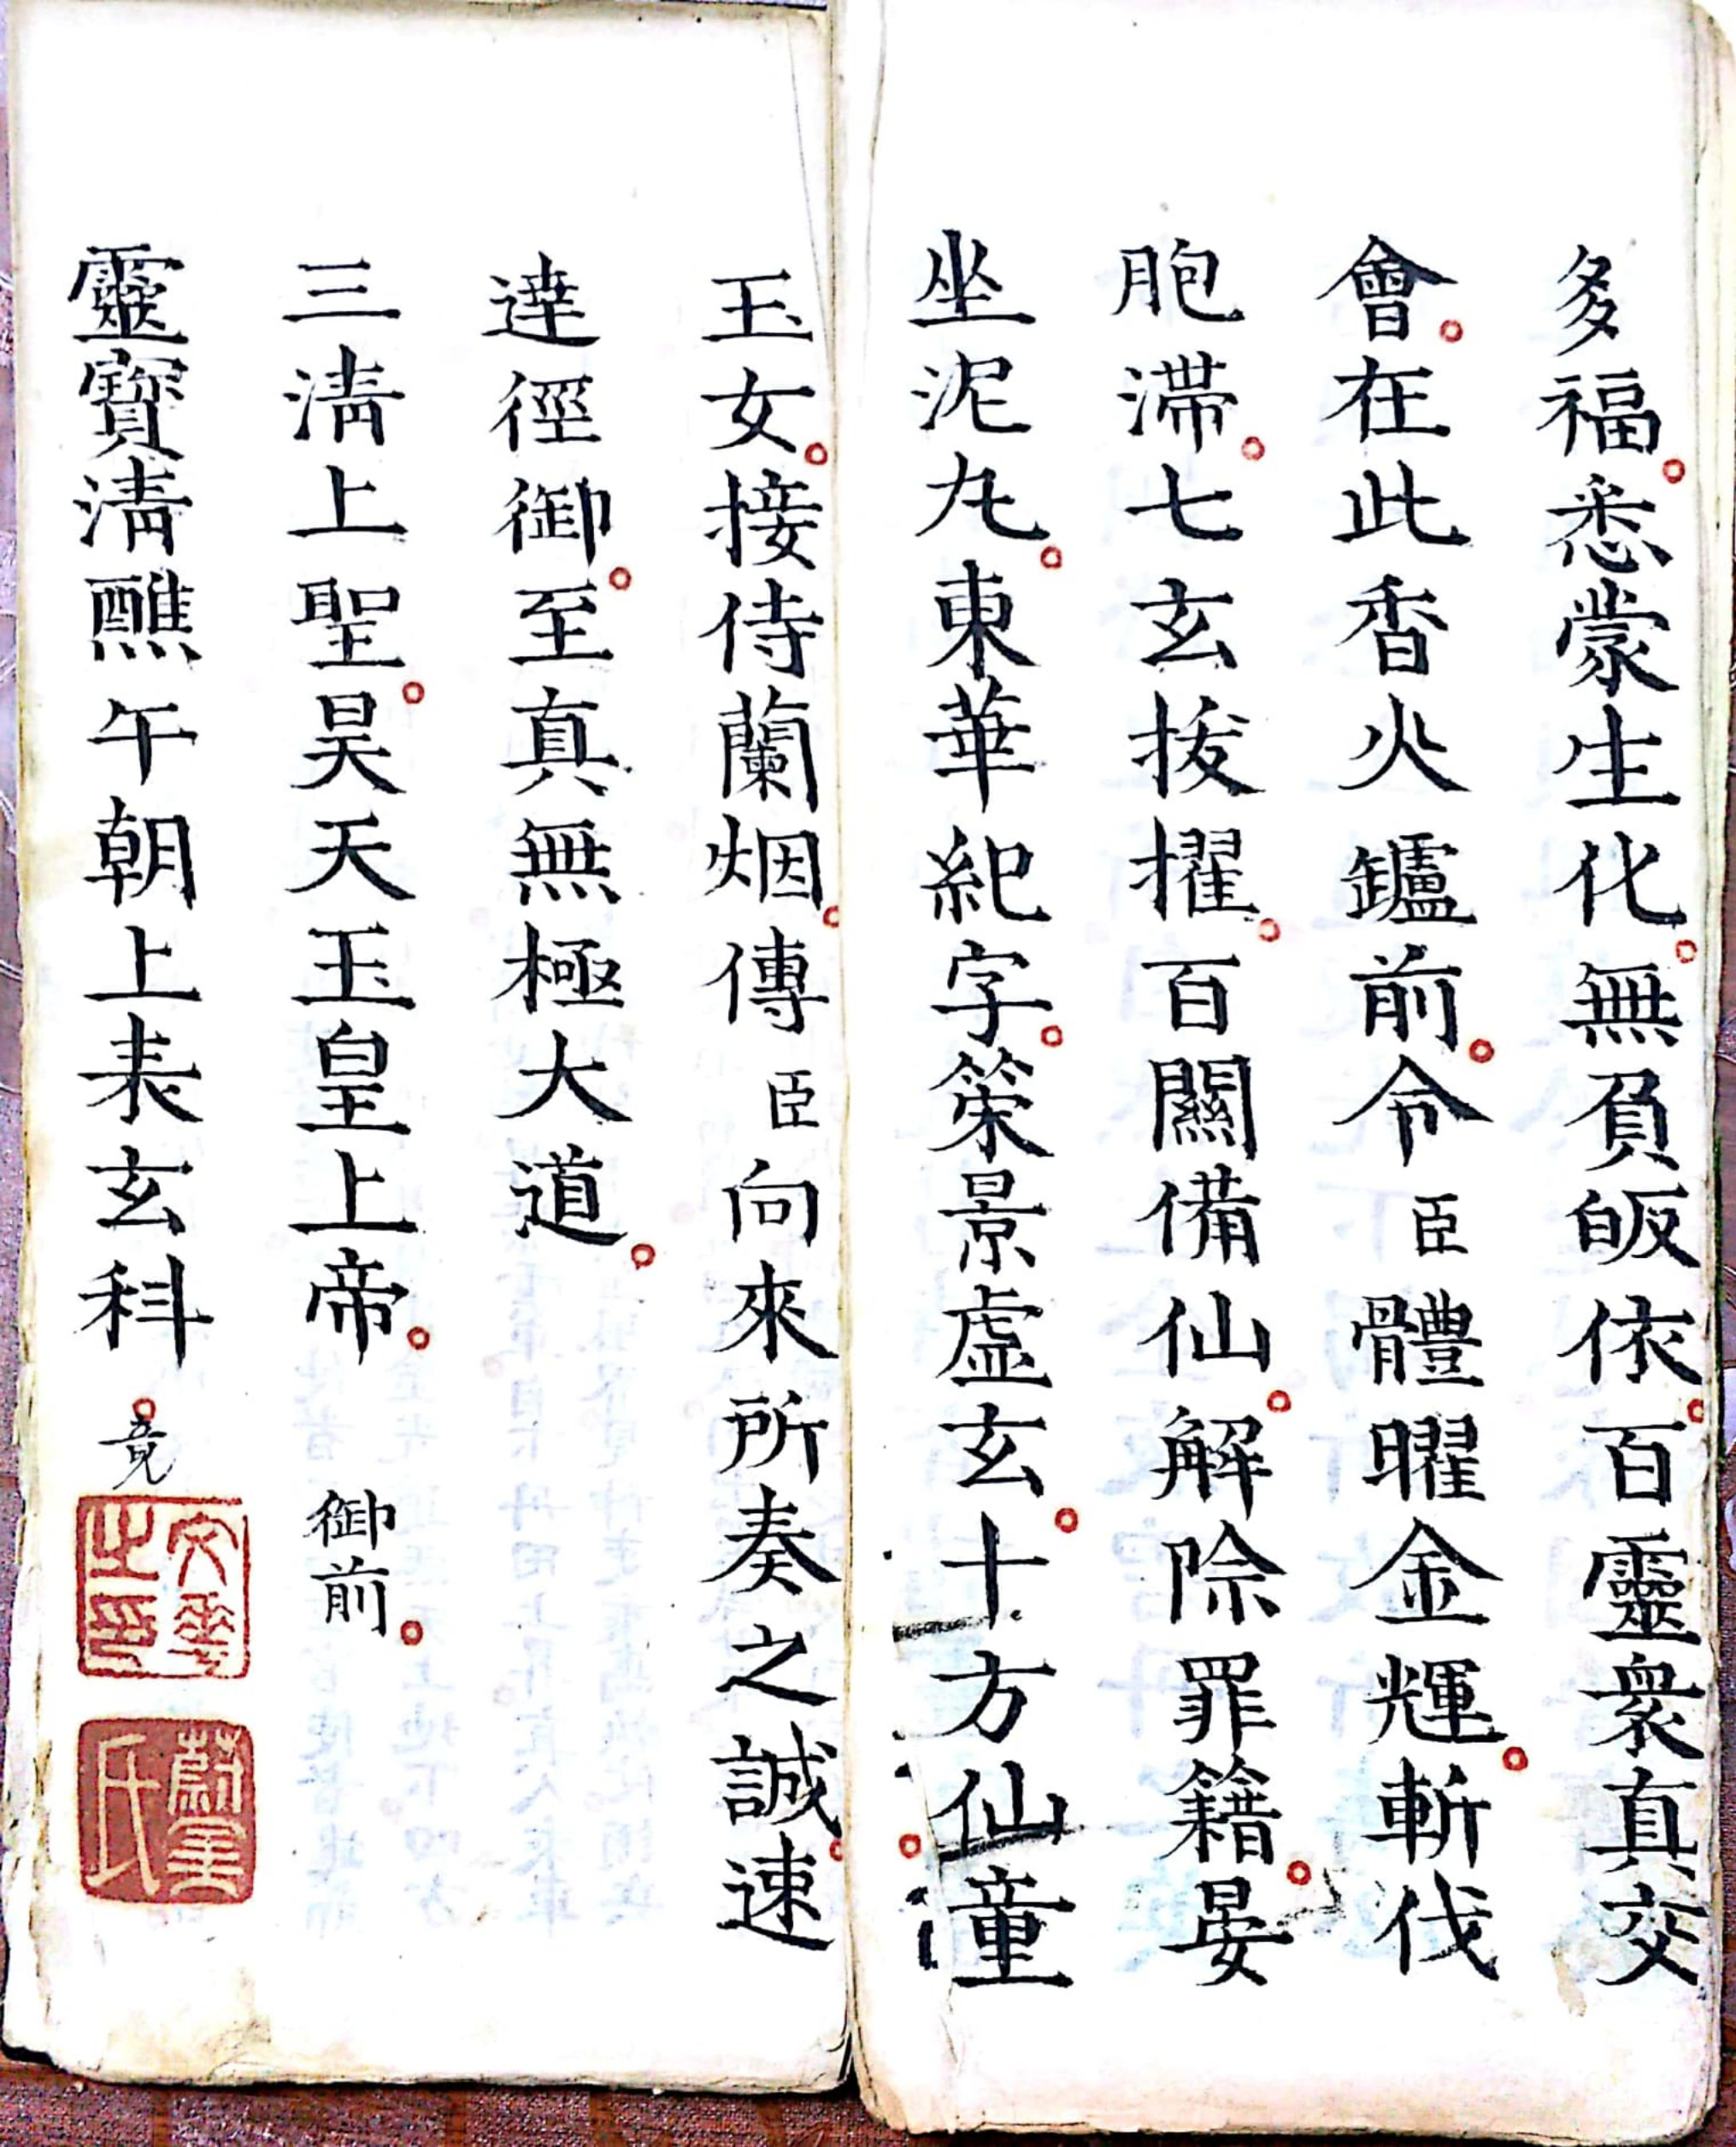 多福。悉蒙生化。無負皈依。百靈衆真交
會。在此香火鑪前。令臣體曜金輝。斬伐
胞滯。七玄拔擢。百關備仙。解除罪籍。晏
坐泥丸。東華紀字。策景虛玄。十方仙童
玉女。接侍蘭烟。傳臣向來所奏之誠。速
達徑御。至真無極大道。
三清上聖。昊天玉皇上帝。御前。
靈寶清醮午朝上表玄科。竟
文秀之印
蔚圣氏